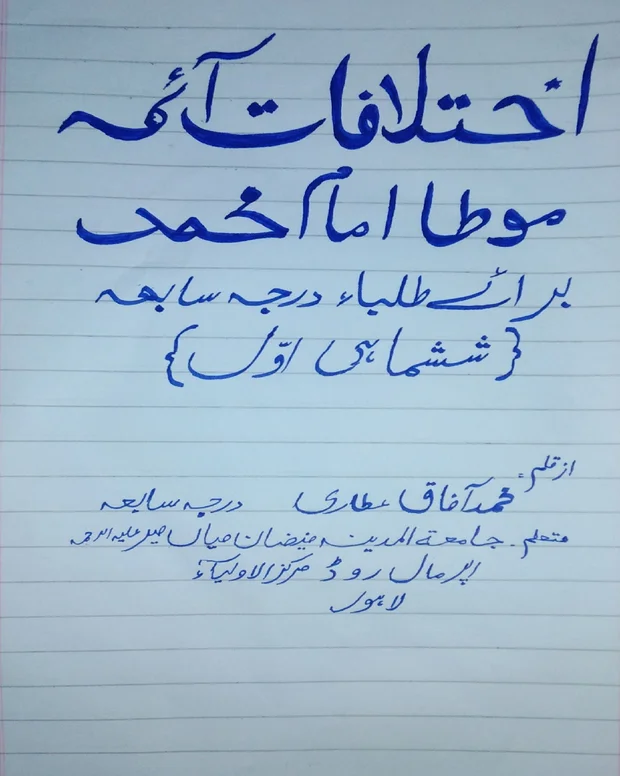 اختلافات آئمہ
موطا امام محمد
برائے طلباء درجہ سابعہ
{ششماہی اوّل}
از قلم:
محمد آفاق عطاری درجہ سابعہ
متعلم۔ جامعۃ المدینہ فیضان میاں میر علیہ الرحمہ
اپر مال روڈ مرکز الاولیاء
لاہور